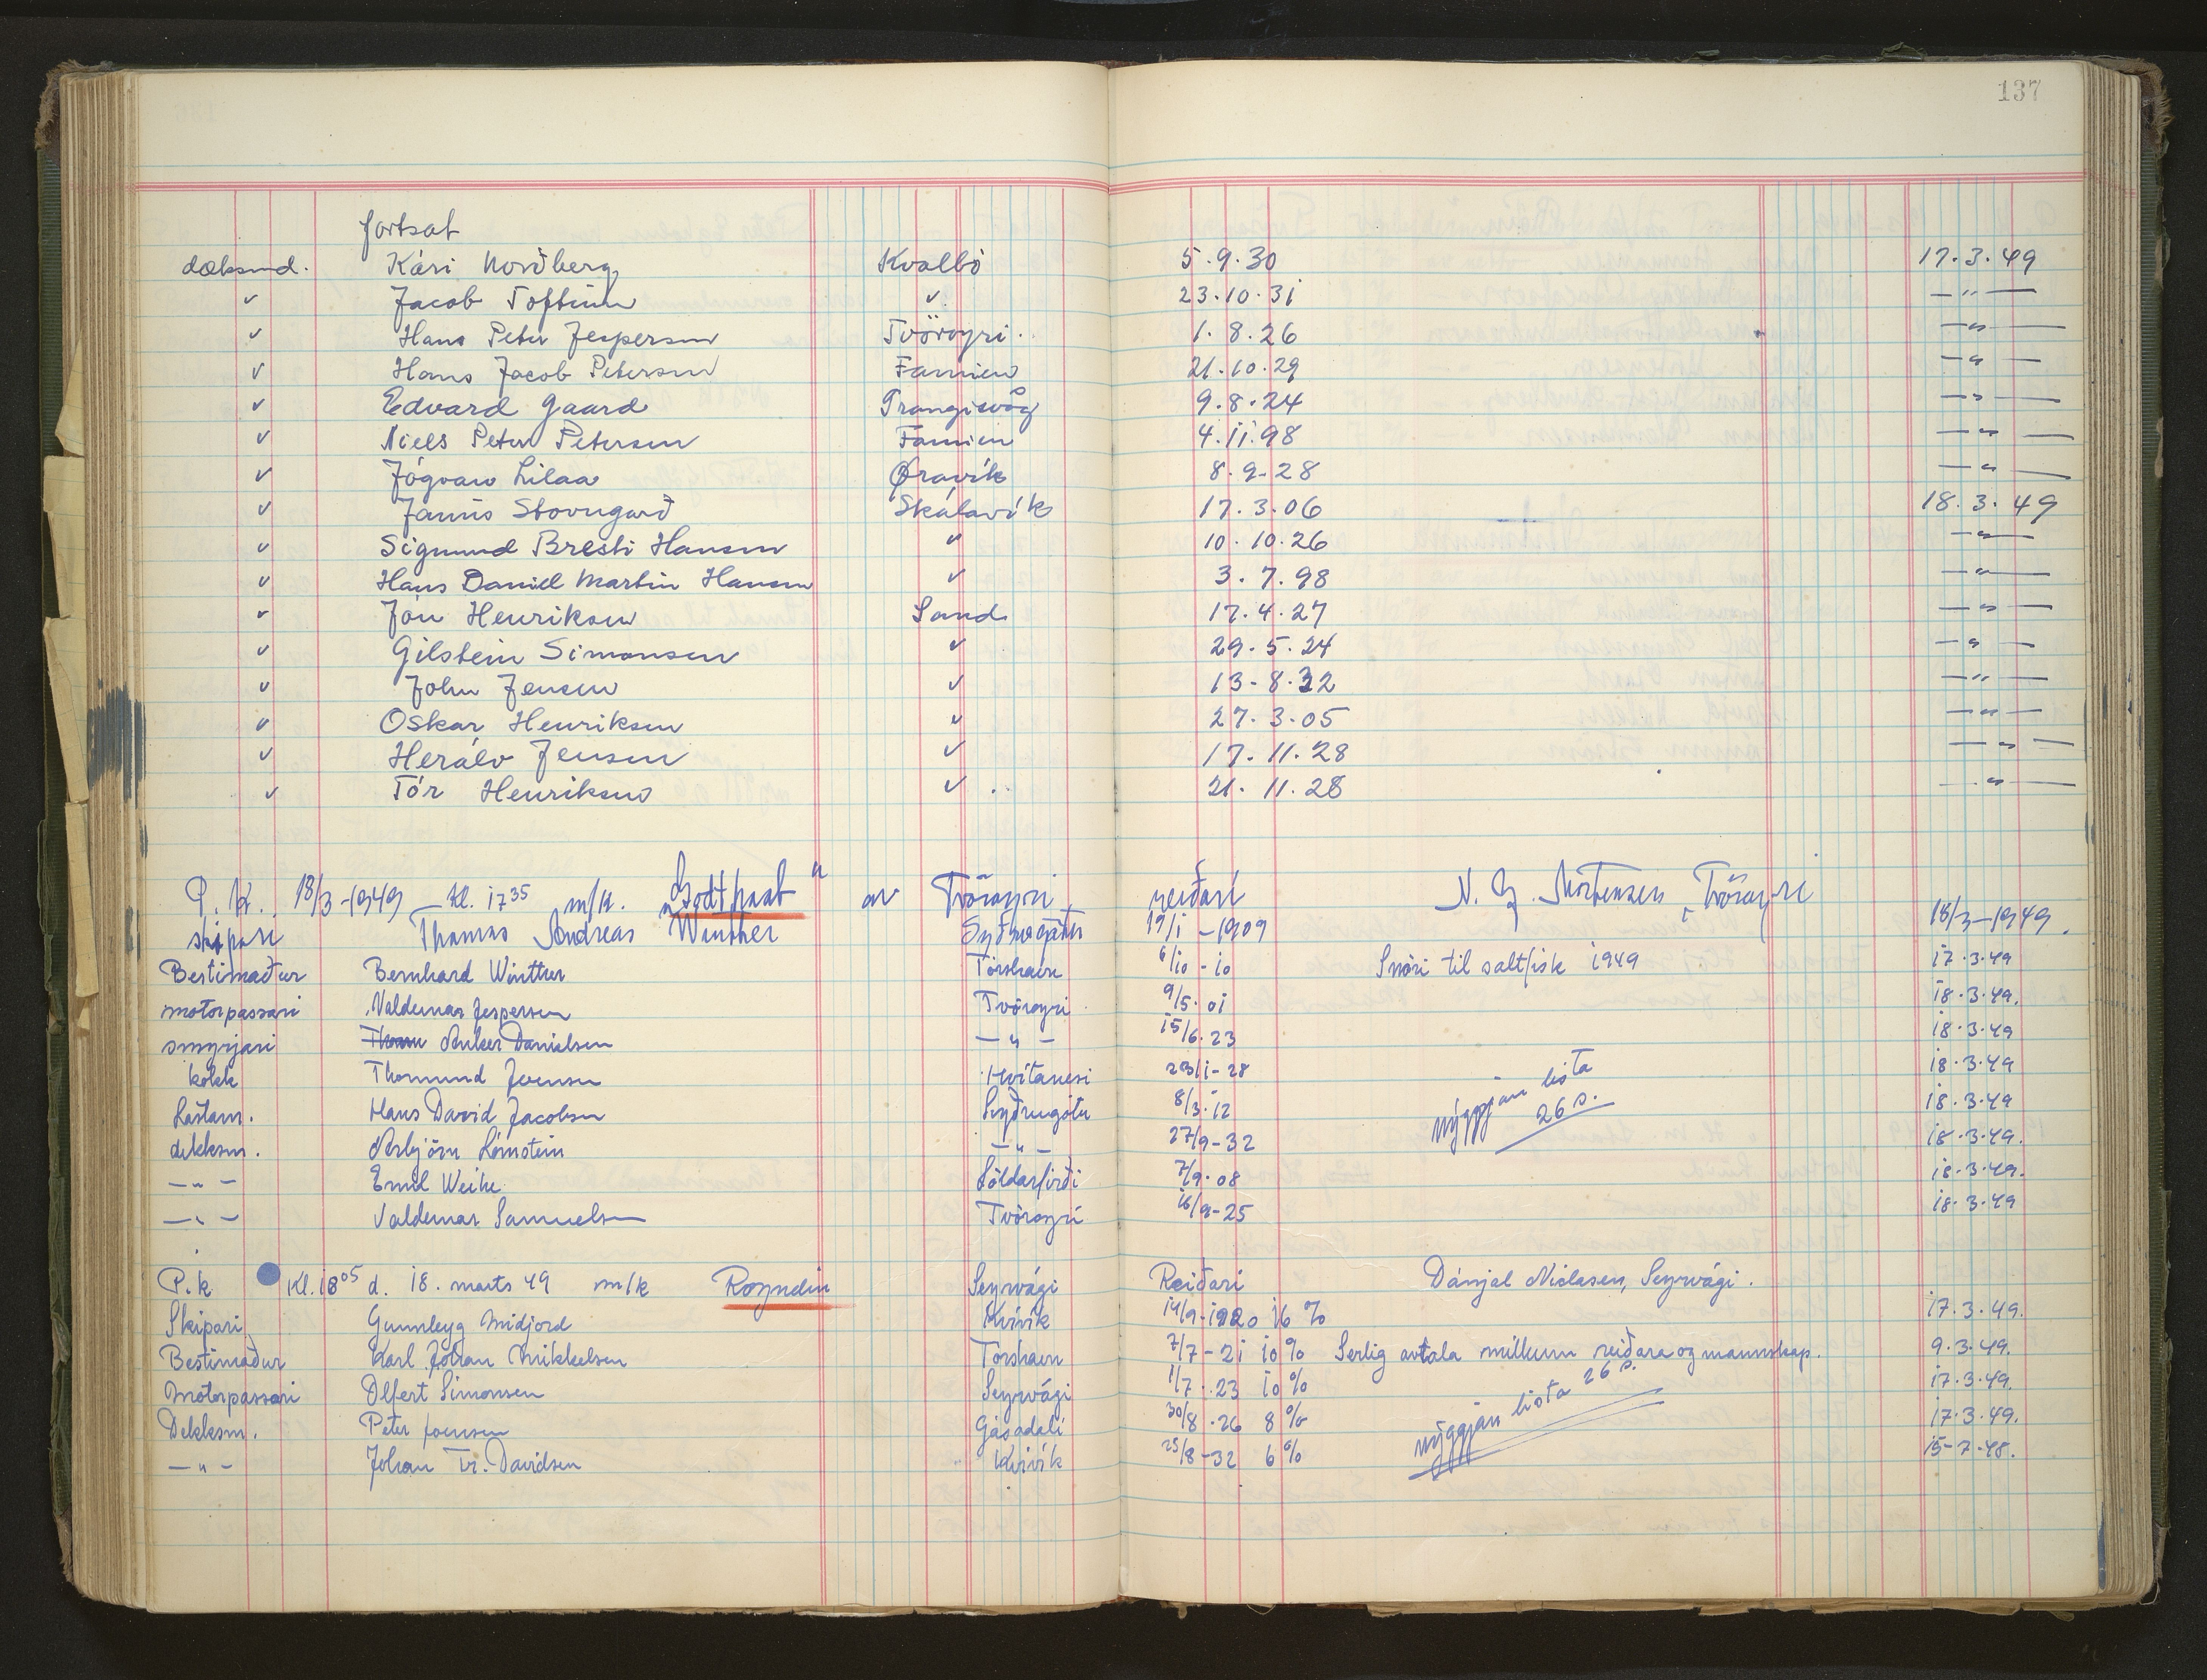 137
fortsat
dæksmd. Kári Norðberg Kvalbö 5.9.30 17.3.49
✓ Jacob Toftum ✓ 23.10.31 — " —
✓ Hans Peter Jespersen Tvöroyri. 1.8.26 — " —
✓ Hans Jacob Petersen Famien 21.10.29 — " —
✓ Edvard Gaard Trangisvåg 9.8.24 — " —
✓ Niels Peter Petersen Famien 4.11.98 — " —
✓ Jógvan Lilaa Øravík 8.9-28 — " —
✓ Janus Stovugarð Skálavík 17.3.06 18.3.49
✓ Sigmund Bresti Hansen " 10.10.26 — " —
✓ Hans Daniel Martin Hansen ✓ 3.7.98 — " —
✓ Jón Henriksen Sand 17.4.27 — " —
✓ Gilstein Simonsen ✓ 29.5.24 — " —
✓ John Jensen ✓ 13-8.32 — " —
✓ Oskar Henriksen ✓ 27.3.05 — " —
✓ Herálv Jensen ✓ 17.11.28 — " —
✓ Tór Henriksen ✓ 21.11.28 — " —
P.k. 18/3-1949 Kl. 17³⁵ m/k. "Godthaab" av Tvöroyri reiðari Mortensen, Tvöroyri
skipari Thomas Andreas Winther Syðrugøtu 19/1-1909 18/3-1949.
Bestimaður Bernhard Winther Tórshavn 6/10-10 Snöri til saltfisk 1949 17.3.49
motorpassari Valdemar Jespersen Tvöroyri 9/5.01 18.3.49.
smyrjari Anker Danielsen — " — 15/6.23 18.3.49
kokk Thormund Joensen Hvítanesi 23/1-28 nýggjan lista 26 s. 18.3.49
Lastam. Hans David Jacobsen Syðrugötu 8/3.12 18.3.49
dekksm. Arbjörn Lómstein — " — 27/9-32 18.3.49.
— " — Emil Weihe Söldarfirði 7/9.08 18.3.49.
— " — Valdemar Samuelsen Tvöroyri 16/9-25 18.3.49
P.k Kl. 18⁰⁵ d. 18. marts 49 m/k Royndin Seyrvági Reiðari Dánjal Niclasen, Seyrvági.
Skipari Gunnleyg Midjord Kvívík 14/9-1920 16 % 17.3.49.
Bestimaður Karl Johan Mikkelsen Tórshavn 7/7-21 10 % Serlig avtala millum reiðara og mannskap. 9.3.49.
Motorpassari Olfert Simonsen Seyrvági 1/7.23 10 % nýggjan lista 26 s. 17.3.49.
Dekksm. Peter Joensen Gásadali 30/8.26 8 % 17.3.49.
— " — Johan Tr. Davidsen Kvívík 25/8-32 6 % 15-7-48.